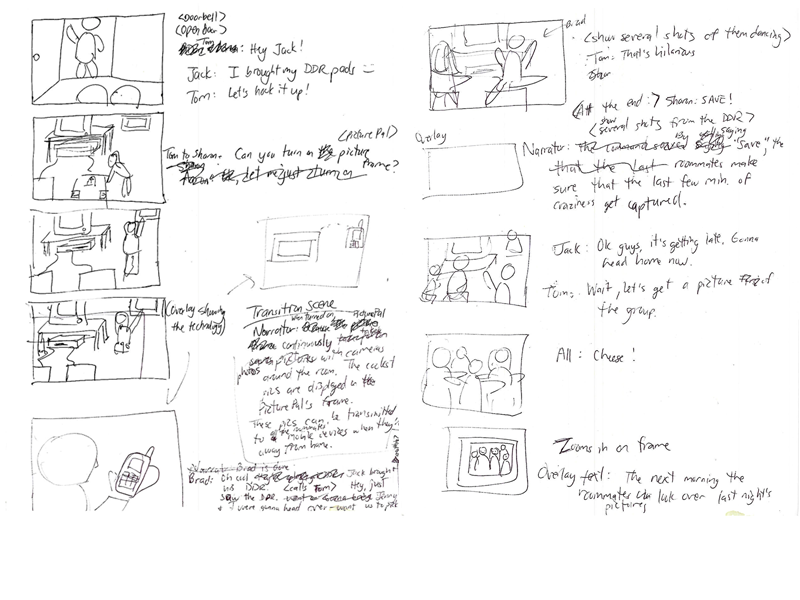 <Doorbell>
<Open door>
Tom: Hey Jack!
Jack: I brought my DDR pads
Tom: Let's hook it up!
<Picture Pal>
Tom to Sharon: Can you turn on the picture
frame?
(Overlay showing
the technology)
Transition scene
Narrator: When turned on, PicturePal
continuously
photos with cameras
around the room. The coolest
pics are displayed on the
PicturePal's frame.
These pics can be transmitted
to the roommates'
mobile devices when they're
away from home.
Brad: Oh cool Jack brought
his DDR. <calls Tom> Hey, just
saw the DDR. Jenny
& I were gonna head over - want us to pick
Brad
<show several shots of them dancing>
Tom: That's hilarious
<At the end:> Sharon: SAVE!
<show several shots from the DDR>
Overlay
Narrator: By saying "Save," the
roommates make
sure that the last few min. of
craziness get captured.
Jack: Ok guys, it's getting late. Gonna
head home now.
Tom: Wait, let's get a picture of
the group.
All: Cheese!
Zooms in on frame
Overlay text: The next morning the
roommates can look over last night's
pictures